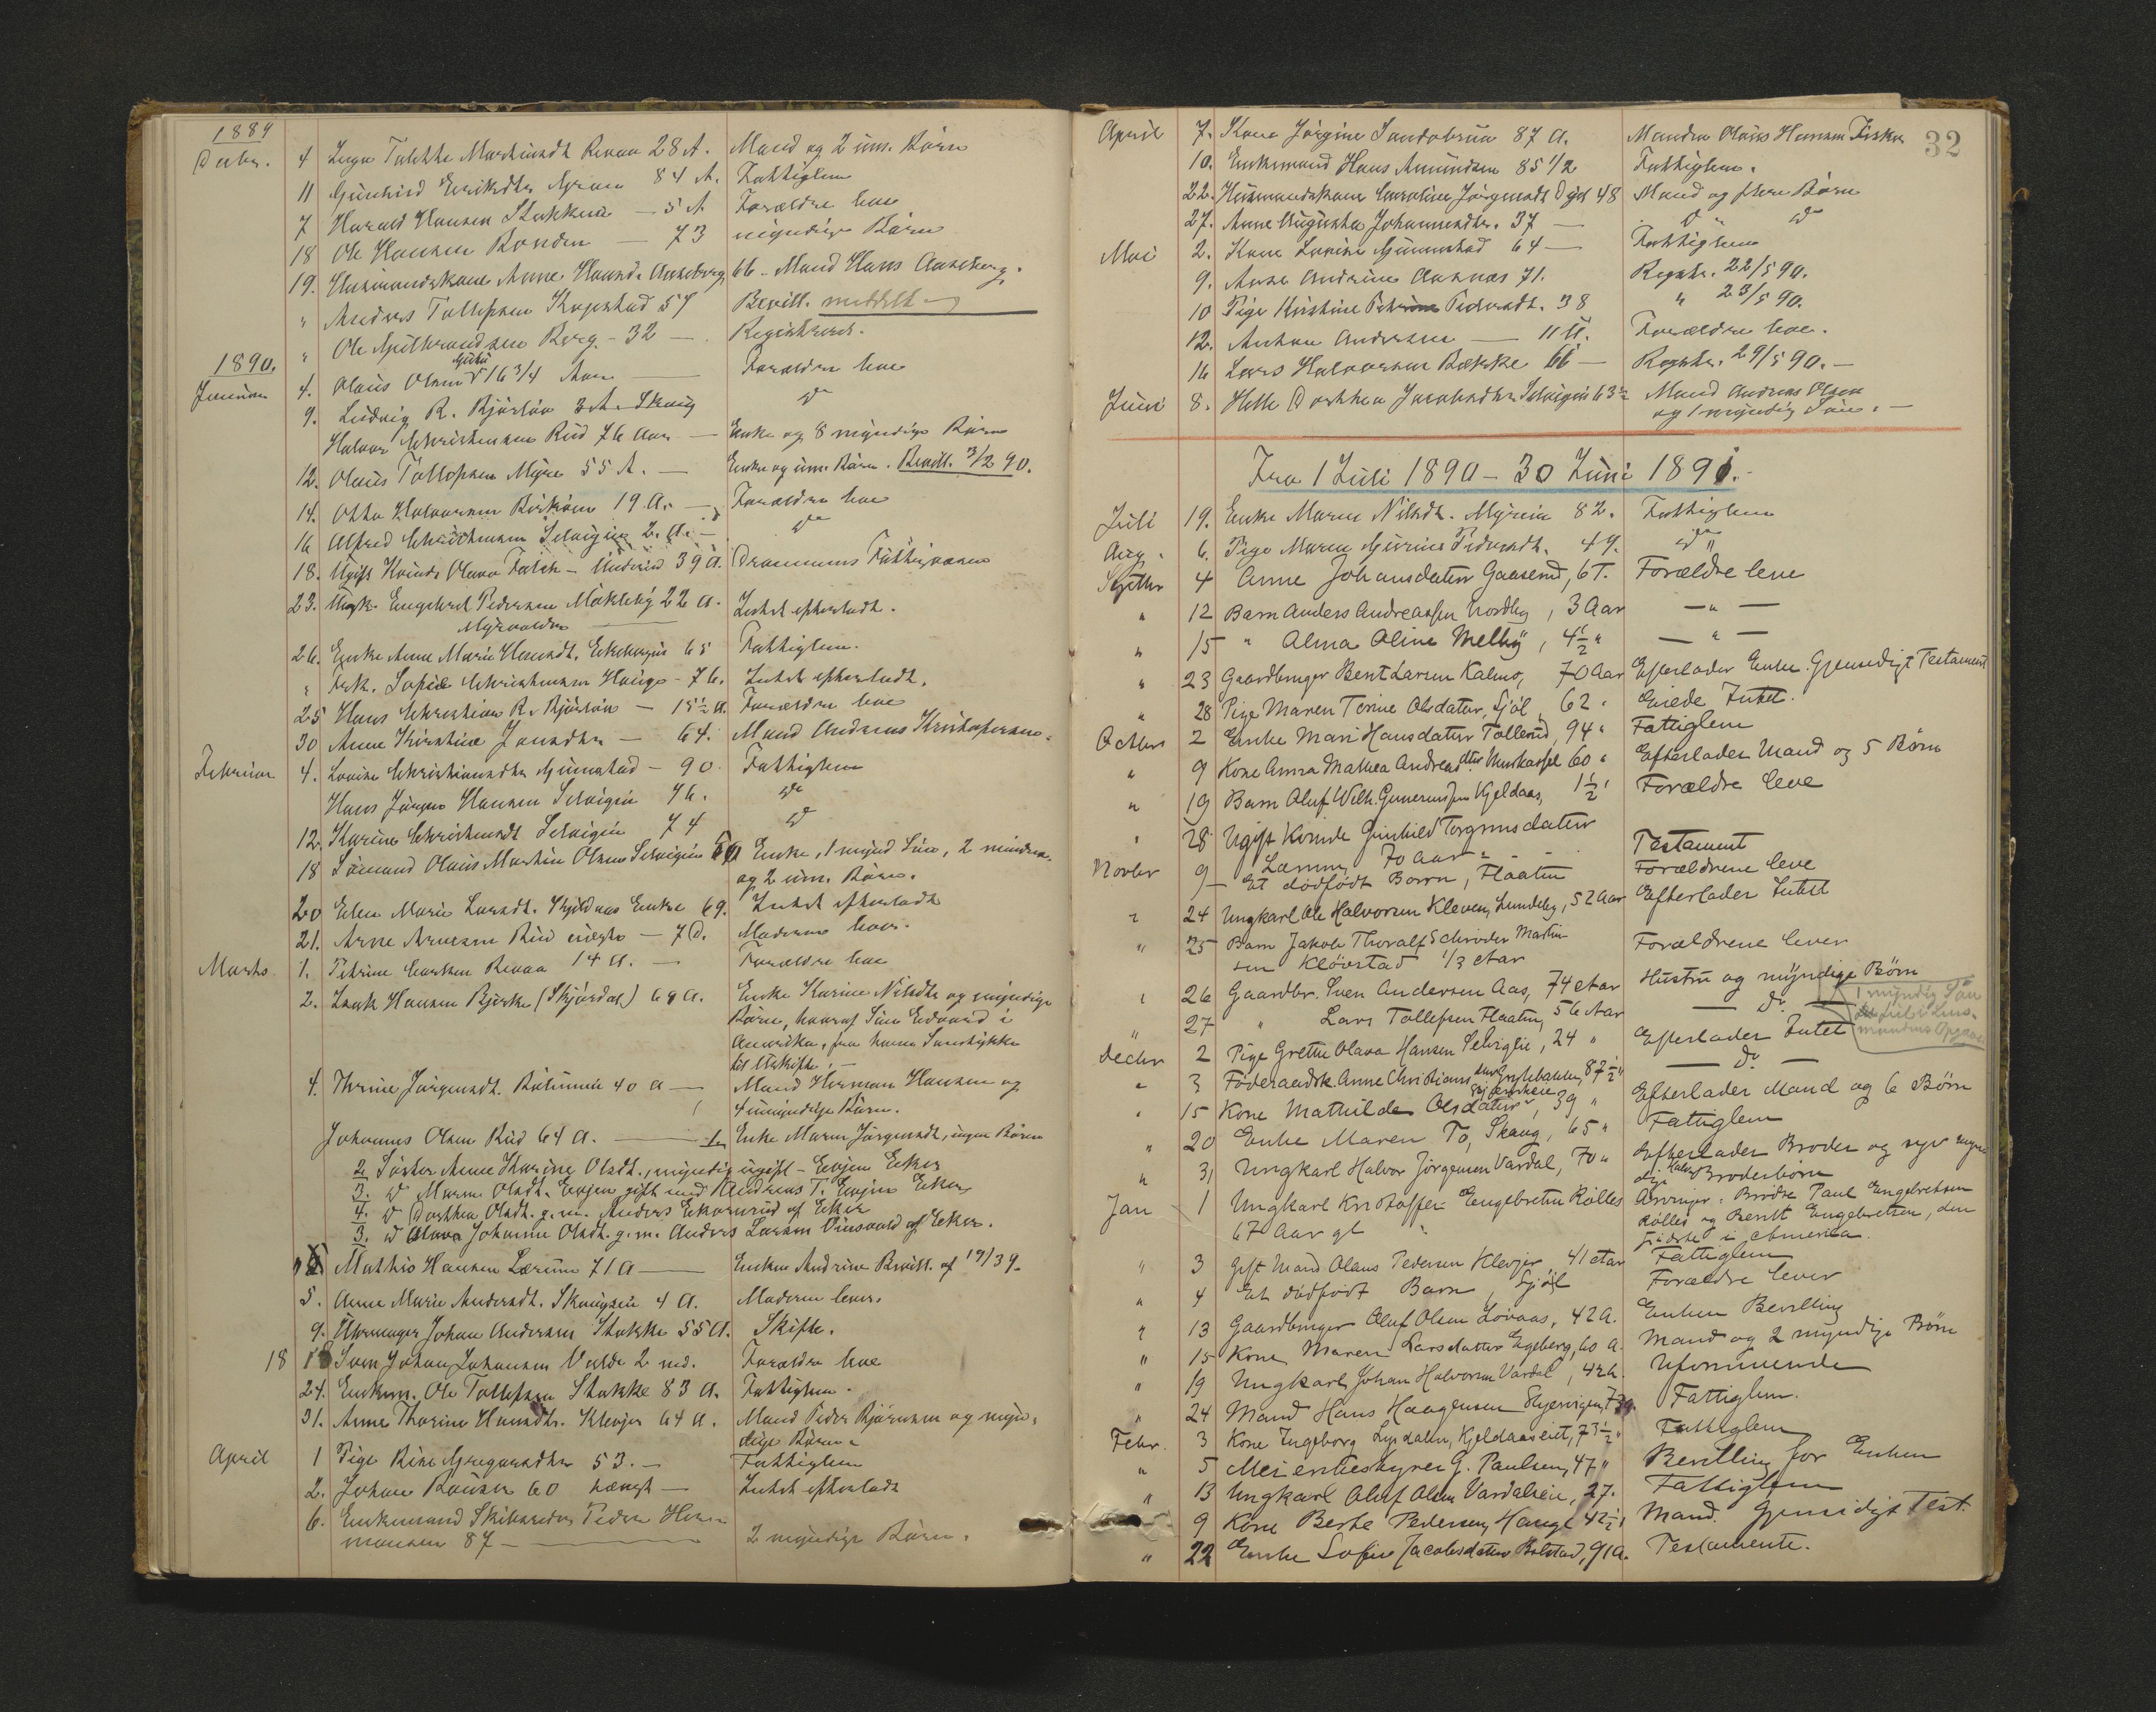 1889
Decbr. 4 Inga Talette Martinsdt. Revaa 28 A. Mand og 2 um. Børn
11 Gunhild Eriksdtr. 84 A. Fattiglem
7 Harald Hansen Stokke — 5 A Forældre leve
18 Ole Hansen — 73 myndige Børn
19. Husmandskone Anne Hansd. Aaseberg 66 - Mand Hans Aaseberg.
" Anders Tollefsen Kopstad 57 Bevill. meddelt
" Ole Gulbrandsen Berg - 32 — Registreret.
1890.
Januar 4. Olaus Olsen 16 3/4 Aar — Forældre leve
9. Ludvig R. Bjørløv 3 A. Skoug do
Halvor Christensen Rud 76 Aar — Enke og 8 myndige Børn
12. Olaus Tollefsen Myre 55 A. — Enke og um. Børn. Bevill. 3/2 90.
14. Otto Halvorsen 19 A. — Forældre leve
16 Alfred Christensen Selvigen 2 A. — do
18. Ugift Kvinde Olava Falch - 39 A. Drammens Fattigvæsen
23. Ungk. Engebret Pedersen 22 A. Intet efterladt.
Myrvolden
26. Enke Anne Marie Hansdt. 65 Fattiglem.
" Fisk. Sofie Christensen Hauge - 76. Intet efterladt.
25 Hans Christian R. Bjørløv — 15 1/2 A. Forældre leve
30 Anne Kirstine Jensdtr — 64. Mand Andreas Kristofersen.
Februar 4. Lovise Christiansdtr Gunnestad - 90. Fattiglem
Hans Jørgen Hansen Selvigen 76. do
12. Karine Christensdt Selvigen 74 do
18 Sømand Olaus Martin Olsen Selvigen Enke, 1 mynd Søn, 2 mindre.
og 2 um. Børn.
20 Elen Marie Larsdt. Kjeldaas Enke 69. Intet efterladt
21. Arne Arnesen Rud — 7 D. Moderen lever.
Marts 1. Petrine Carlsen Revaa 14 A. — Forældre leve
2. Isak Hansen Bjerke (Skjørdal) 69 A. Enke Karine Nilsdtr og myndige
Børn, hvoraf Søn Edvard i
Amerika, fra hvem
til Arkivet. —
4. Thrine Jørgensdt. 40 A — Mand Herman Hansen og
4 umyndige Børn.
Johannes Olsen Rud 64 A. — 1. Enke Maren Jørgensdt, ingen Børn
2. Søster Anne Karine Olsdt., myndig ugift - Evjen Eker
3. do Maren Olsdt. Evjen gift med Andreas T. Evjen Eker
4. do Dorthea Olsdt. g. m. Anders af Eker
3. do Olava Johanne Olsdt. g. m. Anders Larsen af Eker.
Mathis Hansen Lærum 71 A — Enken Andrine Bevill. af 19/39.
5. Anne Marie Andersdt. Skougseie 4 A. Moderen lever.
9. Uhrmager Johan Andersen Stokke 55 A. Skifte.
18 18 Sven Johan Johansen Valde 2 md. Forældre leve
24. Enkem. Ole Tollefsen Stokke 83 A. Fattiglem.
31. Anne Thorine Hansdtr. Klevjer 64 A. Mand Peder Bjørnsen og myn-
dige Børn.
April 1 Pige Rine Gregersdtr 53. — Fattiglem
2. Johan 60 hængt — Intet efterladt
6. Enkemand Skibsreder Peder Her-
mansen 87 — 2 myndige Børn.
32
April 7. Kone Jørgine Sandsbrua 87 A. Manden Olaus Hansen Fisker
10. Enkemand Hans Amundsen 85 1/2 Fattiglem.
22. Husmandskone Caroline Jørgensdt 48 Mand og flere Børn
27. Anne Augusta Johannesdtr. 37 — do " do
Mai 2. Kone Lovise Gunnestad 64 — Fattiglem
9. Anne Andrine Aasnæs 71. Registr. 22/5 90.
10 Pige Kirstine Pedersdt. 38 " 23/5 90.
12. Anton Andersen — 11 U. Forældre leve.
16 Lars Halvorsen Bække 66 — Registr. 29/5 90. —
Juni 8. Helle Dorthea Jacobsdtr Selvigen 63 1/2 Mand Andreas Olsen
og 1 myndig Søn. —
Fra 1 Juli 1890 - 30 Juni 1891.
Juli 19. Enke Maren Nilsdt. Myreie 82. Fattiglem
Aug. 6. Pige Maren Gurine Pedersdt. 49. do "
Septbr 4 Anne Johansdatter Gaaserud, 6 T. Forældre leve
" 12 Barn Anders Andreassen Nordby, 3 Aar — " —
" 15 " Alma Oline Melby, 4 1/2 " — " —
" 23 Gaardbruger Bent Larsen Kalmo, 70 Aar Efterlader Enke. Gjensidigt Testament
" 28 Pige Maren Torine Olsdatter, Sjøl, 62 " Eiede Intet.
Octbr 2 Enke Mari Hansdatter Tollerud, 94 " Fattiglem
" 9 Kone Anna Mathea Andreasdtr 60 " Efterlader Mand og 5 Børn
" 19 Barn Oluf Wilh. Gunerius[sen] Kjeldaas, 1 1/2 " Forældre leve
" 28 Ugift Kvinde Gunhild Torgrimsdatter
Lærum, 70 Aar " Testament
Novbr 9 — Et dødfødt Barn, Flaaten Forældrene leve
" 24 Ungkarl Ole Halvorsen Kleven, Lundeby, 52 Aar Efterlader Intet
" 25 Barn Jakob Thoralf Schrøder Martin-
sen Kløvstad 1/3 Aar Forældrene lever
" 26 Gaardbr. Sven Andersen Aas, 74 Aar Hustru og myndige Børn
1 myndig Søn
" 27 " Lars Tollefsen Flaaten, 56 Aar — do. —
mandens Opgave
Decbr 2 Pige Grethe Olava Hansen Selvigen, 24 " Efterlader Intet
" 3 Føderaadsk. Anne Christiansdtr 87 1/2 " — do —
" 15 Kone Mathilde Olsdatter, 39 " Efterlader Mand og 6 Børn
" 20 Enke Maren To, Skaug, 65 " Fattiglem
" 31 Ungkarl Halvor Jørgensen Vardal, 70 " Efterlader Broder og syv myn-
dige Halvbroderbørn
Jan 1 Ungkarl Kristoffer Engebretsen Rølles Arvinger: Brødre Paul Engebretsen
67 Aar gl " Rølles og Bernt Engebretsen, den
sidste i Amerika.
" 3 Gift Mand Olaus Pedersen Klevjer, 41 Aar Fattiglem
" 4 Et dødfødt Barn, Sjøl Forældre lever
" 13 Gaardbruger Oluf Olsen Løvaas, 42 A. Enken Bevilling
" 15 Kone Maren Larsdatter Egeberg, 60 A. Mand og 2 myndige Børn
" 19 Ungkarl Johan Halvorsen Vardal, 42 A. Uformuende
" 24 Mand Hans Haagensen Fattiglem.
Febr. 3 Kone Ingeborg Kjeldaaseiet, 73 1/2 " Fattiglem
" 5 Meieribestyrer G. Paulsen, 47 " Bevilling for Enken
" 13 Ungkarl Oluf Olsen Vardaleie, 27. Fattiglem
" 9 Kone Berte Pedersen, Hauge 42 1/2 Mand. Gjensidigt Test.
" 22 Enke Sofie Jacobsdatter Bolstad, 91 A. Testamente.